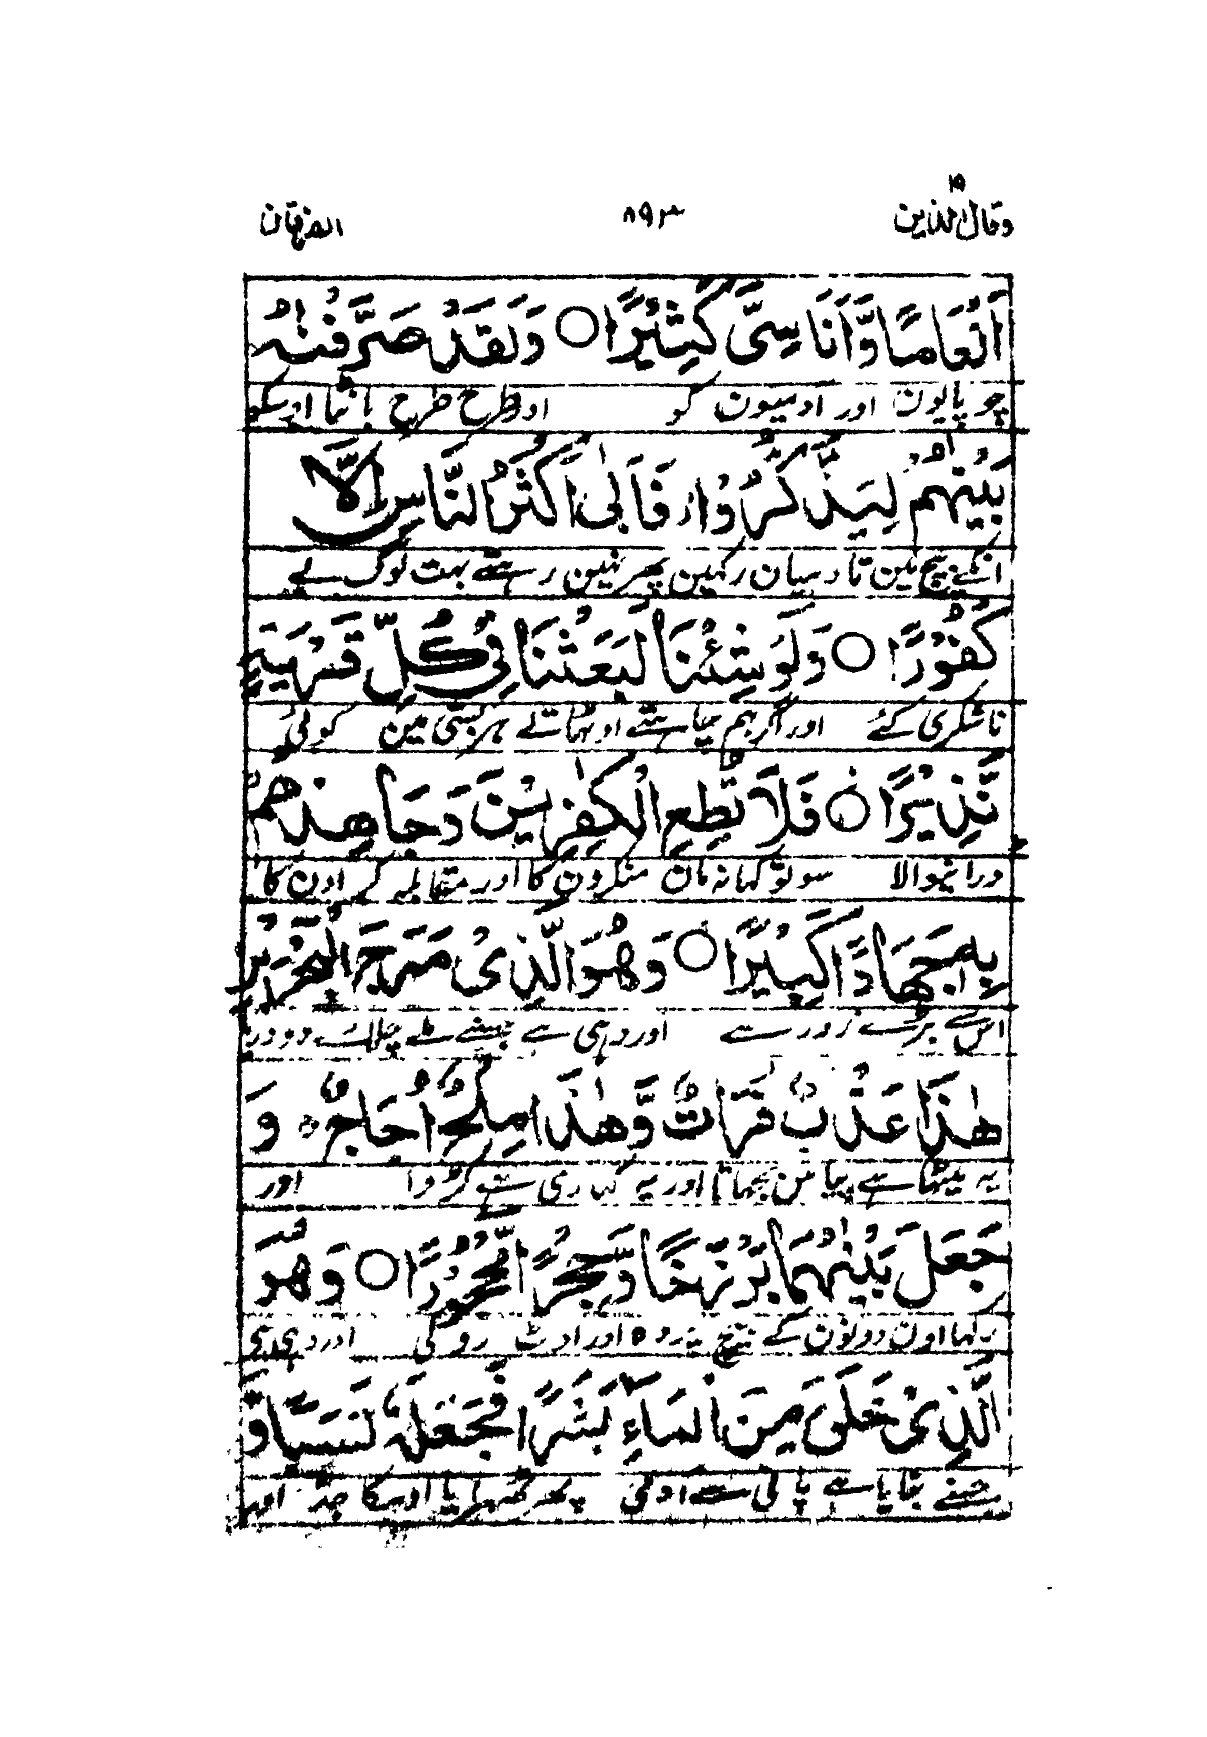 ۱۹
وقال الذین ۸۹۳ الفرقان
اَنْعَامًا وَّاَنَاسِیَّ كَثِیْرًا ○ وَلَقَدْ صَرَّفْنٰهُ
چوپایون اور آدمیون کو اور طرح طرح بانٹا اوسکو
بَیْنَهُمْ لِیَذَّكَّرُوْا ز فَاَبٰۤی اَكْثَرُ النَّاسِ اِلَّا
انکے بیچ مین تا دہیان رکہین پھر نہین رہتے بہت لوگ بے
كُفُوْرًا ○ وَلَوْ شِئْنَا لَبَعَثْنَا فِیْ كُلِّ قَرْیَةٍ
ناشکری کئے اور اگر ہم چاہتے اوٹہاتے ہر بستی مین کوئی
نَّذِیْرًا ○ فَلَا تُطِعِ الْكٰفِرِیْنَ وَجَاهِدْهُمْ
ڈرانیوالا سو تو کہا نہ مان منکرون کا اور مقابلہ کر اون کا
بِهٖ جِهَادًا كَبِیْرًا ○ وَهُوَ الَّذِیْ مَرَجَ الْبَحْرَیْنِ
اس سے بڑے زور سے اور وہی ہے جسنے ملے چلائے دو دریا
هٰذَا عَذْبٌ فُرَاتٌ وَّهٰذَا مِلْحٌ اُجَاجٌ ۚ وَ
یہ میٹھا ہے پیاس بجھاتا اور یہ کہاری ہے کڑوا اور
جَعَلَ بَیْنَهُمَا بَرْزَخًا وَّحِجْرًا مَّحْجُوْرًا ○ وَهُوَ
رکہا اون دونون کے بیچ پردہ اور اوٹ روکی اور وہی ہی
الَّذِیْ خَلَقَ مِنَ الْمَآءِ بَشَرًا فَجَعَلَهٗ نَسَبًا وَّ
جسنے بنایا ہے پانی سے آدمی پھر ٹھہرایا اوسکا جد اور